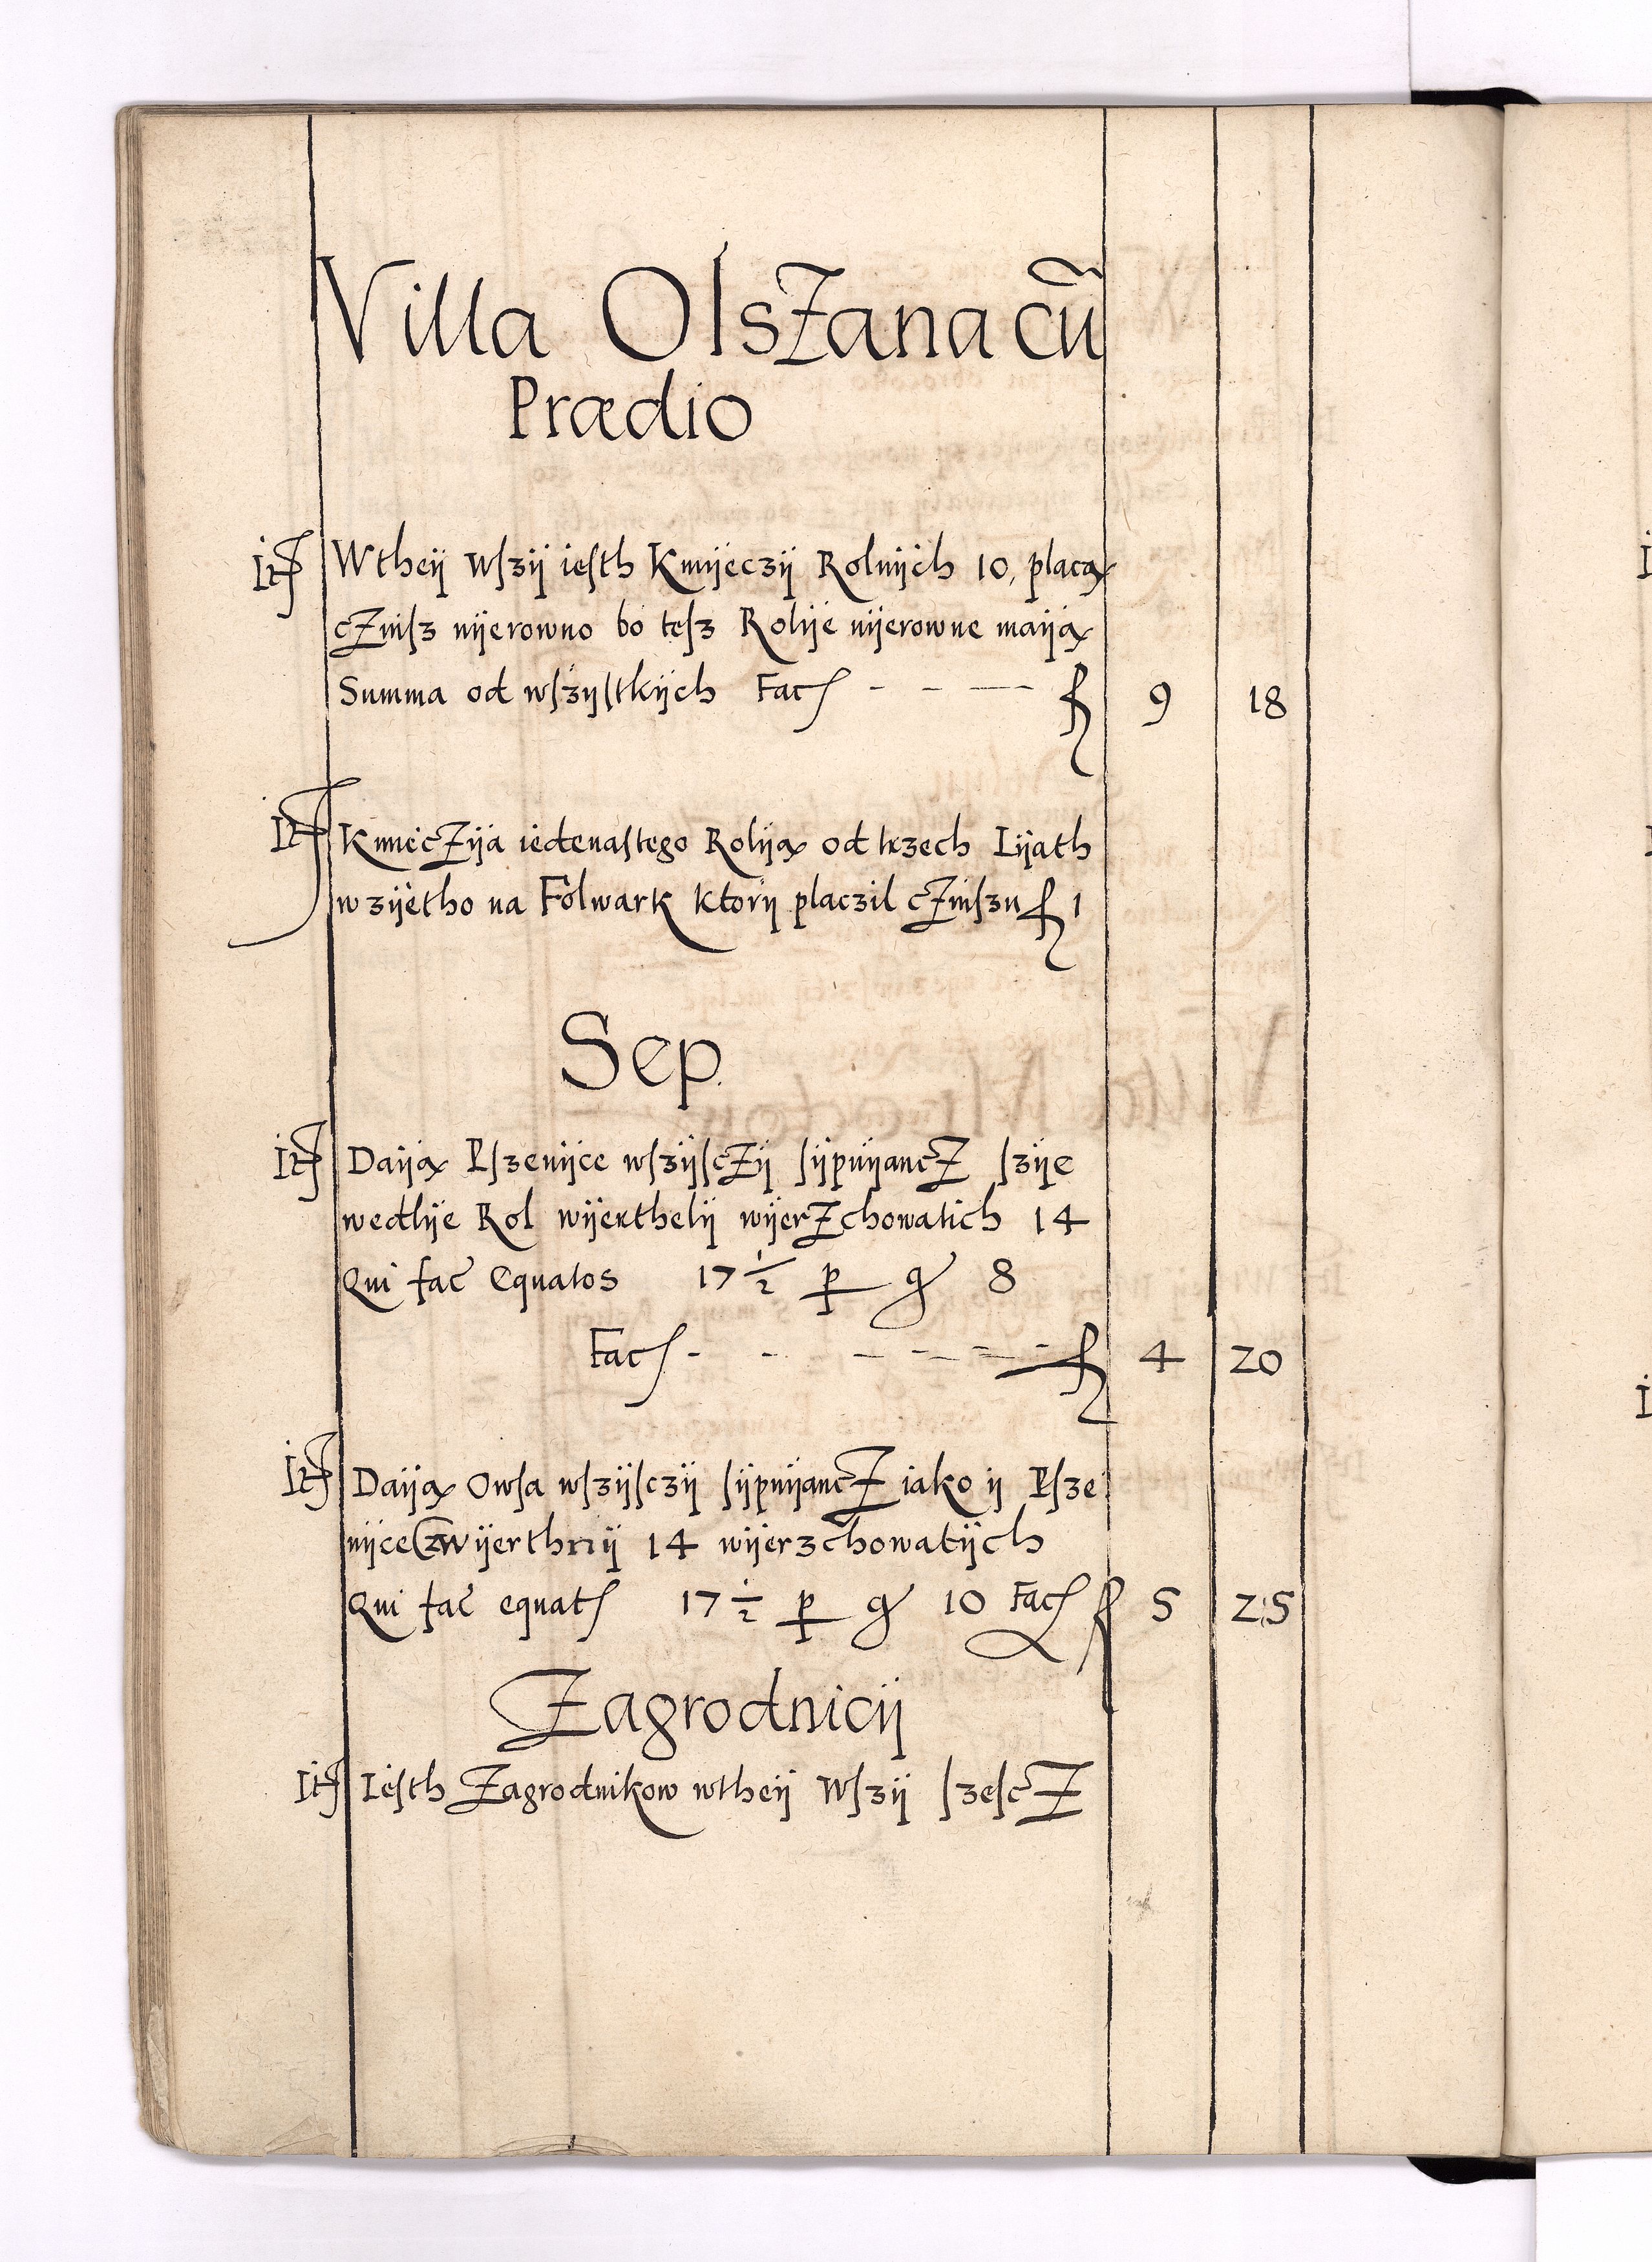 Villa OlsZana cũ
Prædio
Itẽ Wtheÿ Wſzÿ ieſth Kmÿeczÿ Rolnÿch 10, placą
cZinſz nÿerowno bo teſz Rolÿe nÿerowne maÿą
Summa od wſzÿſtkÿch Facꝭ - - - fl 9 18
Itẽ KmiecZÿa iedenaſtego Rolÿą od trzech Lÿath
wzÿetho na Folwark ktorÿ placzil cZinſzu fl 1
Sep.
Itẽ Daÿą Pſzenÿce wſzÿſcZÿ ſÿpuÿancZ ſzÿe
wedlÿe Rol wÿerthelÿ wÿerZchowatich 14
Qui fac̄ equatos 17 1/2 ꝑ gͬ 8
Facꝭ - - - - - - fl 4 20
Itẽ Daÿą Owſa wſzÿſczÿ ſÿpuÿancZ iako ÿ Pſze
nÿce wÿerthnÿ 14 wÿerzchowatÿch
Qui fac̄ equatꝭ 17 1/2 ꝑ gͬ 10 Facꝭ fl 5 25
Zagrodnicÿ
Itẽ Ieſth Zagrodnikow wtheÿ Wſzÿ ſzeſcZ